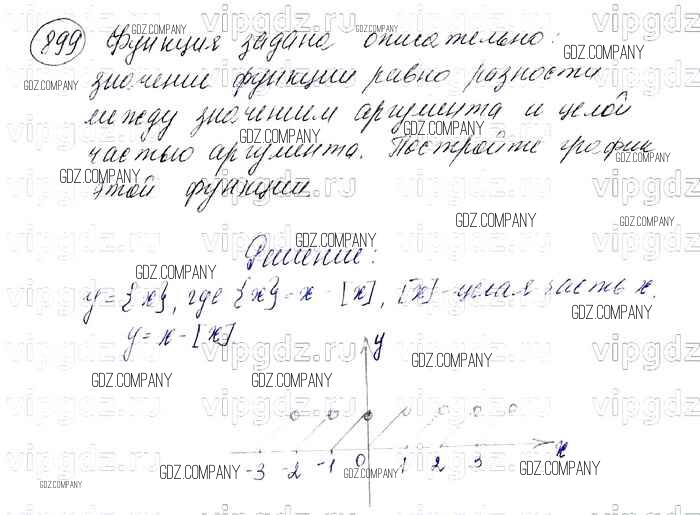 899 Функция задана описательно:
значение функции равно разности
между значением аргумента и целой
частью аргумента. Постройте график
этой функции.
Решение:
y = {x}, где {x} - x - [x], [x] - целая часть x.
y = x - [x].
y
-3 -2 -1 0 1 2 3 x
GDZ.COMPANY
vipgdz.ru